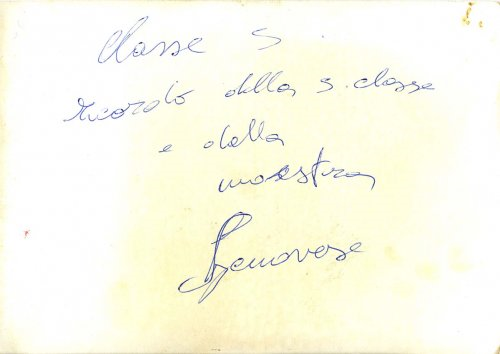 Classe 5.
ricordo della 5. classe
e della
maestra
Genovese